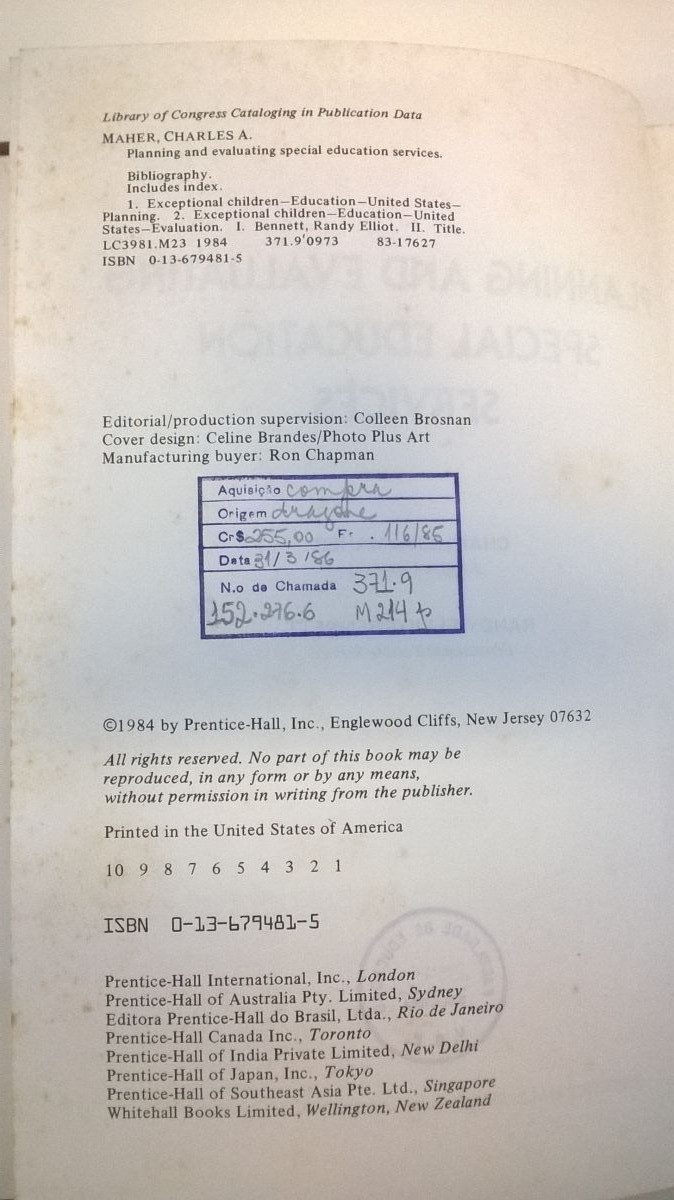 Library of Congress Cataloging in Publication Data
MAHER, CHARLES A.
Planning and evaluating special education services.
Bibliography.
Includes index.
1. Exceptional children—Education—United States—
Planning. 2. Exceptional children—Education—United
States—Evaluation. I. Bennett, Randy Elliot. II. Title.
LC3981.M23 1984 371.9'0973 83-17627
ISBN 0-13-679481-5
PLANNING AND EVALUATING
SPECIAL EDUCATION
SERVICES
Editorial/production supervision: Colleen Brosnan
Cover design: Celine Brandes/Photo Plus Art
Manufacturing buyer: Ron Chapman
Aquisição compra
Origem
Cr$ 255,00 Fr. 116/85
Data 31/3/86
N.o de Chamada 371.9
152.276.6 M214p
©1984 by Prentice-Hall, Inc., Englewood Cliffs, New Jersey 07632
All rights reserved. No part of this book may be
reproduced, in any form or by any means,
without permission in writing from the publisher.
Printed in the United States of America
10 9 8 7 6 5 4 3 2 1
ISBN 0-13-679481-5
Prentice-Hall International, Inc., London
Prentice-Hall of Australia Pty. Limited, Sydney
Editora Prentice-Hall do Brasil, Ltda., Rio de Janeiro
Prentice-Hall Canada Inc., Toronto
Prentice-Hall of India Private Limited, New Delhi
Prentice-Hall of Japan, Inc., Tokyo
Prentice-Hall of Southeast Asia Pte. Ltd., Singapore
Whitehall Books Limited, Wellington, New Zealand